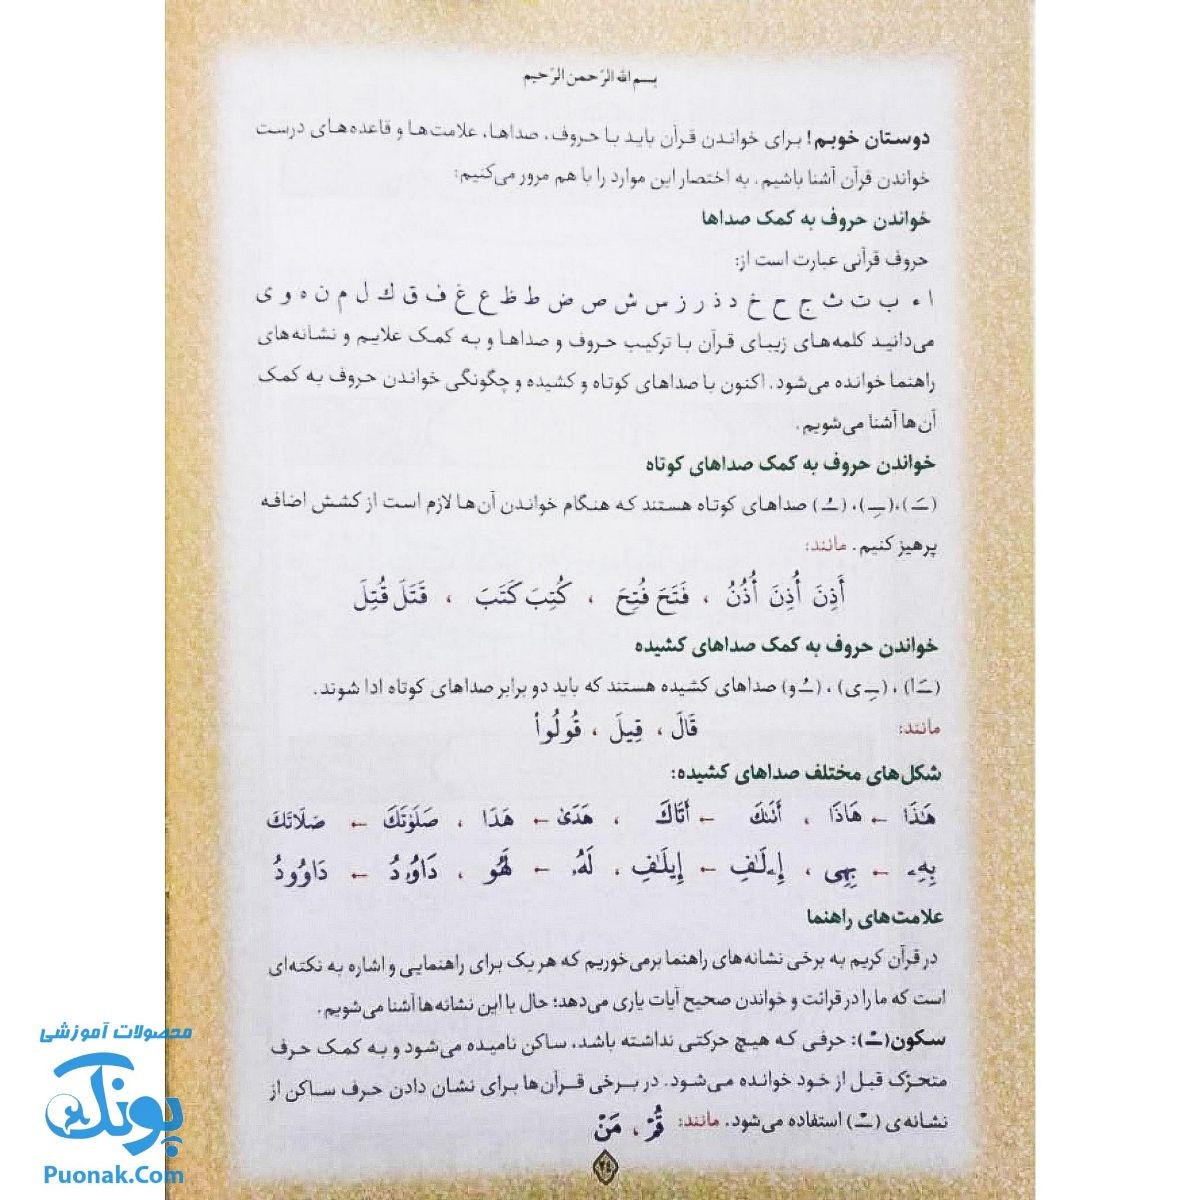 بسم الله الرّحمن الرّحیم
دوستان خوبم! برای خواندن قرآن باید با حروف، صداها، علامت‌ها و قاعده‌های درست
خواندن قرآن آشنا باشیم. به اختصار این موارد را با هم مرور می‌کنیم:
خواندن حروف به کمک صداها
حروف قرآنی عبارت است از:
ا ء ب ت ث ج ح خ د ذ ر ز س ش ص ض ط ظ ع غ ف ق ك ل م ن ه و ی
می‌دانید کلمه‌های زیبای قرآن با ترکیب حروف و صداها و به کمک علایم و نشانه‌های
راهنما خوانده می‌شود. اکنون با صداهای کوتاه و کشیده و چگونگی خواندن حروف به کمک
آن‌ها آشنا می‌شویم.
خواندن حروف به کمک صداهای کوتاه
(ـَ)، (ـِ)، (ـُ) صداهای کوتاه هستند که هنگام خواندن آن‌ها لازم است از کشش اضافه
پرهیز کنیم. مانند:
أَذِنَ أُذِنَ أُذُنُ ، فَتَحَ فُتِحَ ، كُتِبَ كَتَبَ ، قَتَلَ قُتِلَ
خواندن حروف به کمک صداهای کشیده
(ـَا)، (ـِی)، (ـُو) صداهای کشیده هستند که باید دو برابر صداهای کوتاه ادا شوند.
مانند: قَالَ ، قِیلَ ، قُولُوا
شکل‌های مختلف صداهای کشیده:
هَٰذَا ← هَاذَا ، أَتَىٰكَ ← أَتَاكَ ، هَدَىٰ ← هَدَا ، صَلَوٰتَكَ ← صَلَاتَكَ
بِهِۦ ← بِهِی ، إِۦلَٰفِ ← إِیلَٰفِ ، لَهُۥ ← لَهُو ، دَاوُۥدُ ← دَاوُودُ
علامت‌های راهنما
در قرآن کریم به برخی نشانه‌های راهنما برمی‌خوریم که هر یک برای راهنمایی و اشاره به نکته‌ای
است که ما را در قرائت و خواندن صحیح آیات یاری می‌دهد؛ حال با این نشانه‌ها آشنا می‌شویم.
سکون (ـْ): حرفی که هیچ حرکتی نداشته باشد، ساکن نامیده می‌شود و به کمک حرف
متحرّک قبل از خود خوانده می‌شود. در برخی قرآن‌ها برای نشان دادن حرف ساکن از
نشانه‌ی (ـْ) استفاده می‌شود. مانند: قُمْ ، مَنْ
۲۴
محصولات آموزشی
پونک
Puonak.Com